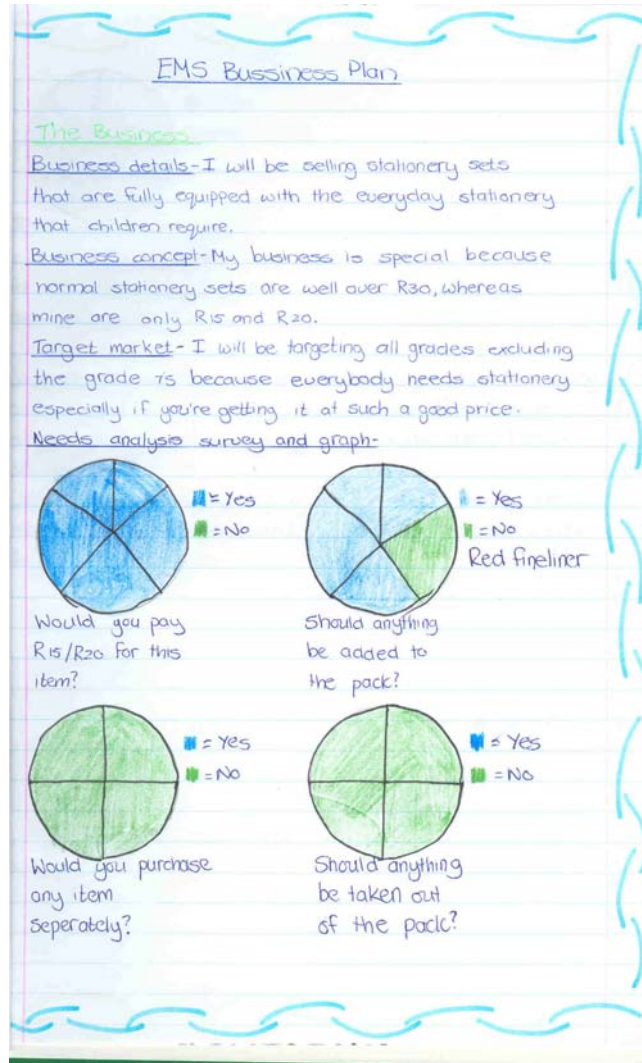 EMS Bussiness Plan
The Business
Business details - I will be selling stationery sets
that are fully equipped with the everyday stationery
that children require.
Business concept - My business is special because
normal stationery sets are well over R30, whereas
mine are only R15 and R20.
Target market - I will be targeting all grades excluding
the grade 7s because everybody needs stationery
especially if you're getting it at such a good price.
Needs analysis survey and graph -
= Yes
= No
= Yes
= No
Red fineliner
Would you pay
R15/R20 for this
item?
Should anything
be added to
the pack?
= Yes
= No
= Yes
= No
Would you purchase
any item
seperately?
Should anything
be taken out
of the pack?